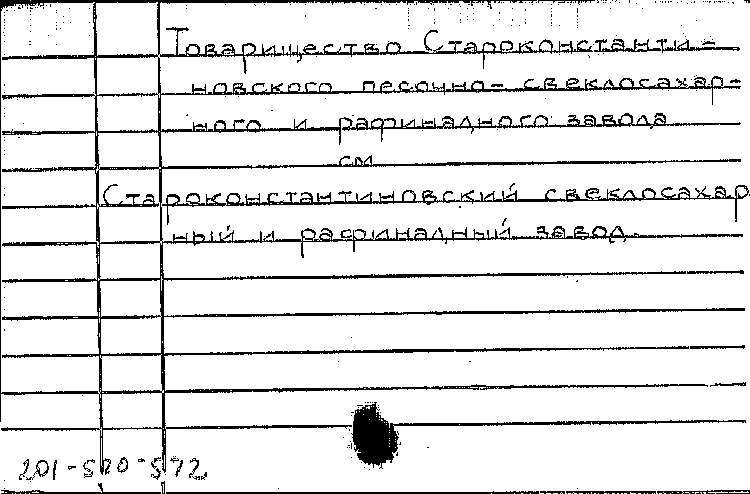 Товарищество Староконстанти-
новского песочно-свеклосахар-
ного и рафинадного завода
см
Староконстантиновский свеклосахар
ный и рафинадный завод.
201-520-572